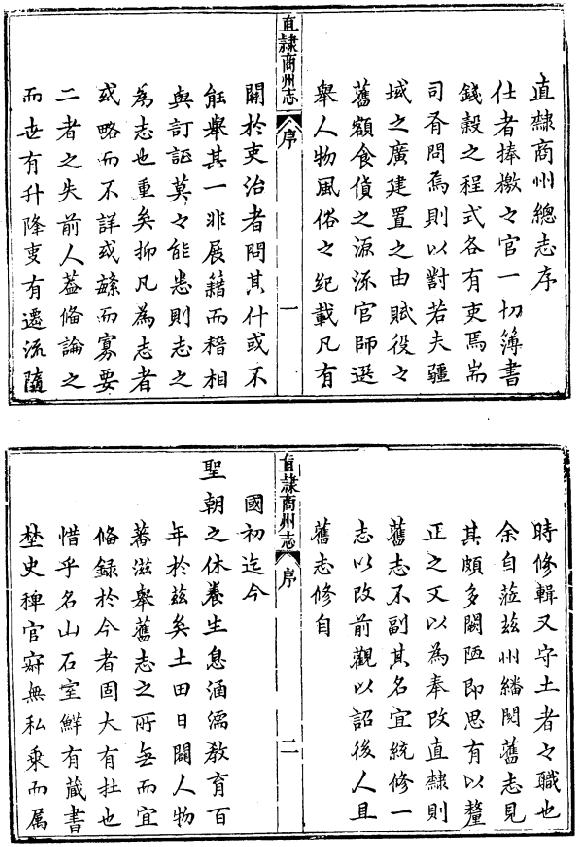 直隸商州總志序
仕者捧檄之官一切簿書
錢穀之程式各有吏焉耑
司胥問焉則以對若夫疆
域之廣建置之由賦役之
舊額食貨之源流官師選
舉人物風俗之紀載凡有
直隸商州志
序
一
關於吏治者問其什或不
能舉其一非展籍而稽相
與訂証莫之能悉則志之
為志也重矣抑凡為志者
或略而不詳或蕪而寡要
二者之失前人葢俻論之
而世有升降吏有遷流隨
時修輯又守土者之職也
余自蒞兹州繙閱舊志見
其頗多闕陋即思有以釐
正之又以為奉改直隸則
舊志不副其名宜統修一
志以改前觀以詔後人且
舊志修自
直隸商州志
序
二
國初迄今
聖朝之休養生息涵濡教育百
年於兹矣土田日闢人物
蕃滋舉舊志之所無而宜
俻録於今者固大有在也
惜乎名山石室鮮有藏書
埜史稗官寂無私乘而属